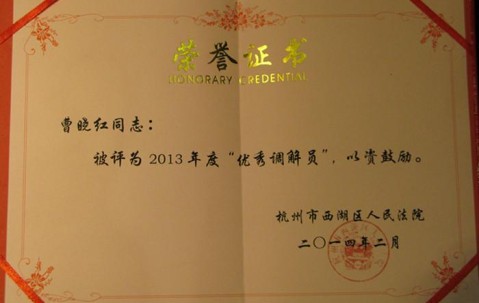 荣誉证书
HONORARY CREDENTIAL
曹晓红同志：
被评为2013年度“优秀调解员”，以资鼓励。
杭州市西湖区人民法院
二〇一四年二月